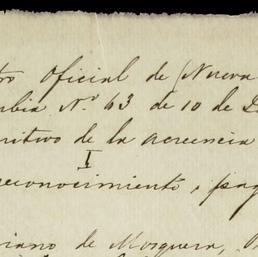 tro Oficial de (Nueva
mbia Nº 63 de 10 de D
nitivo de la acreencia
I
reconocimiento i pag
riano de Mosquera,